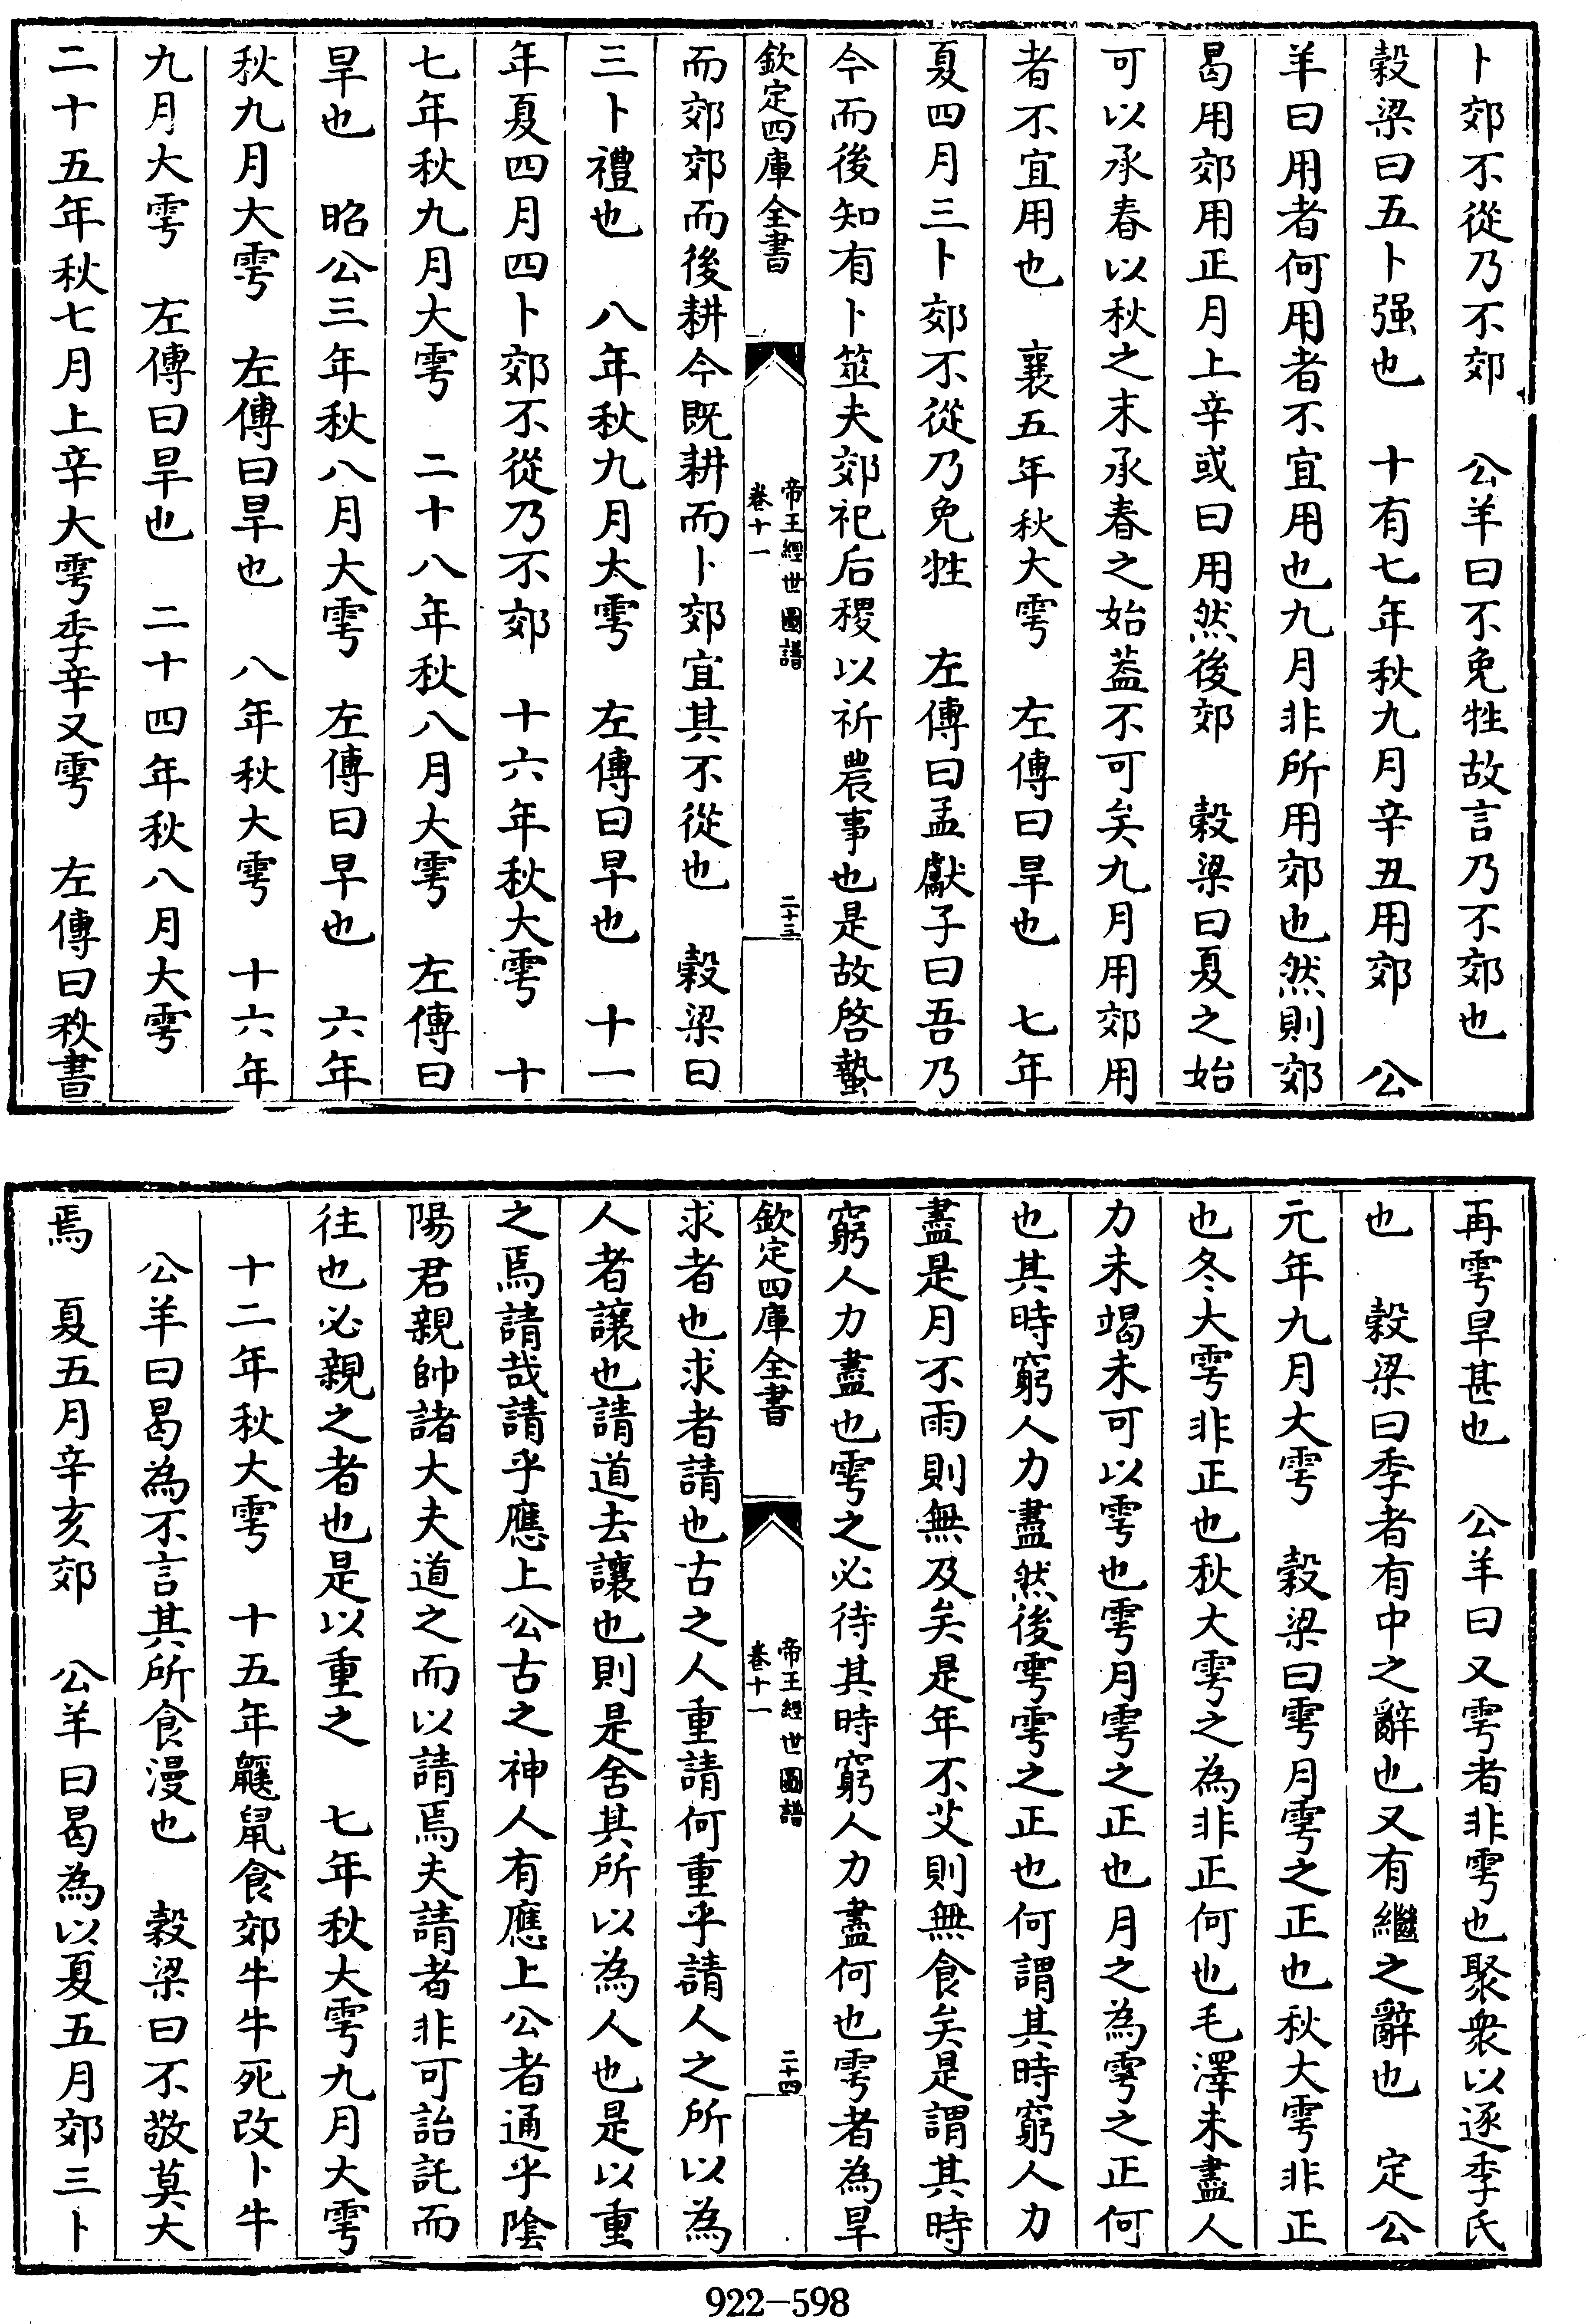 卜郊不從乃不郊　公羊曰不免牲故言乃不郊也
穀梁曰五卜强也　十有七年秋九月辛丑用郊　公
羊曰用者何用者不宜用也九月非所用郊也然則郊
曷用郊用正月上辛或曰用然後郊　穀梁曰夏之始
可以承春以秋之末承春之始葢不可矣九月用郊用
者不宜用也　襄五年秋大雩　左傳曰旱也　七年
夏四月三卜郊不從乃免牲　左傳曰孟獻子曰吾乃
今而後知有卜筮夫郊祀后稷以祈農事也是故啓蟄
欽定四庫全書　帝王經世圖譜　卷十一　二十三
而郊郊而後耕今既耕而卜郊宜其不從也　穀梁曰
三卜禮也　八年秋九月大雩　左傳曰旱也　十一
年夏四月四卜郊不從乃不郊　十六年秋大雩　十
七年秋九月大雩　二十八年秋八月大雩　左傳曰
旱也　昭公三年秋八月大雩　左傳曰旱也　六年
秋九月大雩　左傳曰旱也　八年秋大雩　十六年
九月大雩　左傳曰旱也　二十四年秋八月大雩
二十五年秋七月上辛大雩季辛又雩　左傳曰秋書
再雩旱甚也　公羊曰又雩者非雩也聚衆以逐季氏
也　穀梁曰季者有中之辭也又有繼之辭也　定公
元年九月大雩　穀梁曰雩月雩之正也秋大雩非正
也冬大雩非正也秋大雩之為非正何也毛澤未盡人
力未竭未可以雩也雩月雩之正也月之為雩之正何
也其時窮人力盡然後雩雩之正也何謂其時窮人力
盡是月不雨則無及矣是年不艾則無食矣是謂其時
窮人力盡也雩之必待其時窮人力盡何也雩者為旱
欽定四庫全書　帝王經世圖譜　卷十一　二十四
求者也求者請也古之人重請何重乎請人之所以為
人者讓也請道去讓也則是舍其所以為人也是以重
之焉請哉請乎應上公古之神人有應上公者通乎陰
陽君親帥諸大夫道之而以請焉夫請者非可詒託而
往也必親之者也是以重之　七年秋大雩九月大雩
十二年秋大雩　十五年鼷鼠食郊牛牛死改卜牛
公羊曰曷為不言其所食漫也　穀梁曰不敬莫大
焉　夏五月辛亥郊　公羊曰曷為以夏五月郊三卜
922-598